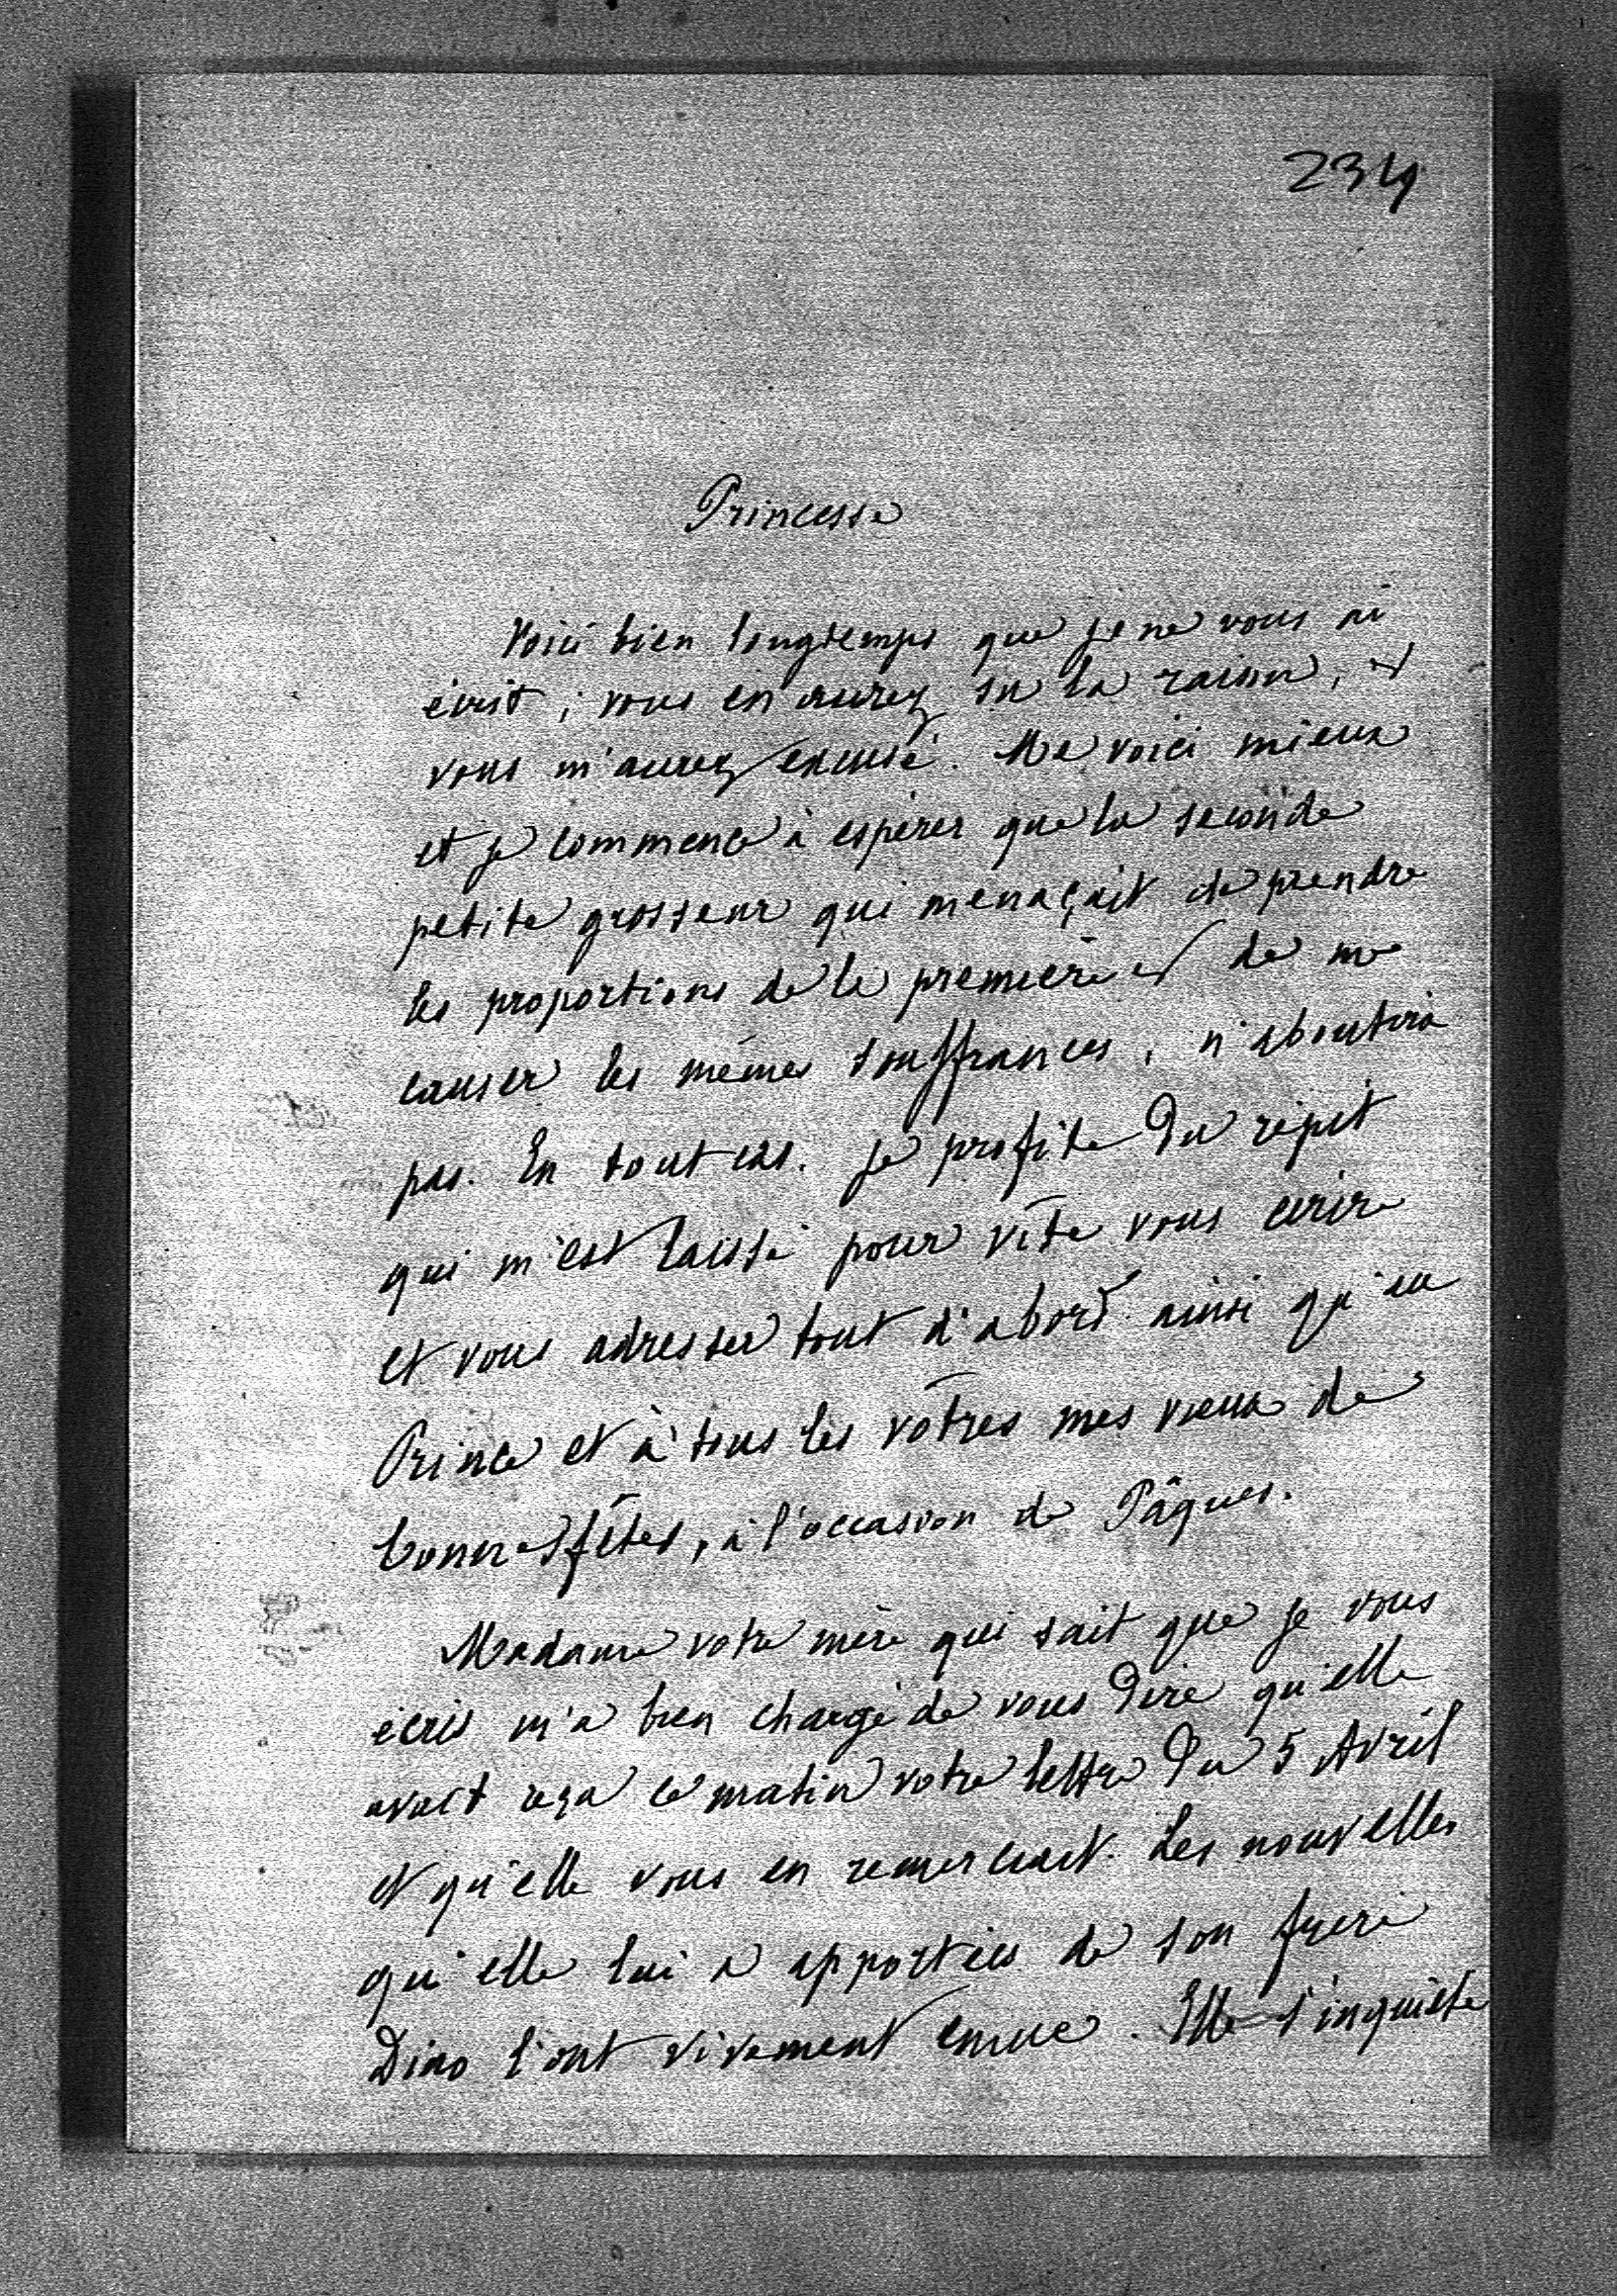 234
Princesse
Voici bien longtemps que je ne vous ai
écrit ; vous en aurez su la raison, et
vous m'aurez excusé. Me voici mieux
et je commence à espérer que la seconde
petite grosseur qui menaçait de prendre
les proportions de la première et de me
causer les mêmes souffrances, n'aboutira
pas. En tout cas. je profite du répit
qui m'est laissé pour vite vous écrire
et vous adresser tout d'abord ainsi qu'au
Prince et à tous les vôtres mes vœux de
bonnes fêtes, à l'occasion de Pâques.
Madame votre mère qui sait que je vous
écris m'a bien chargé de vous dire qu'elle
avait reçu ce matin votre lettre du 5 Avril
et qu'elle vous en remerciait. Les nouvelles
qu'elle lui a apportées de son frère
Dino l'ont vivement émue. Elle s'inquiète